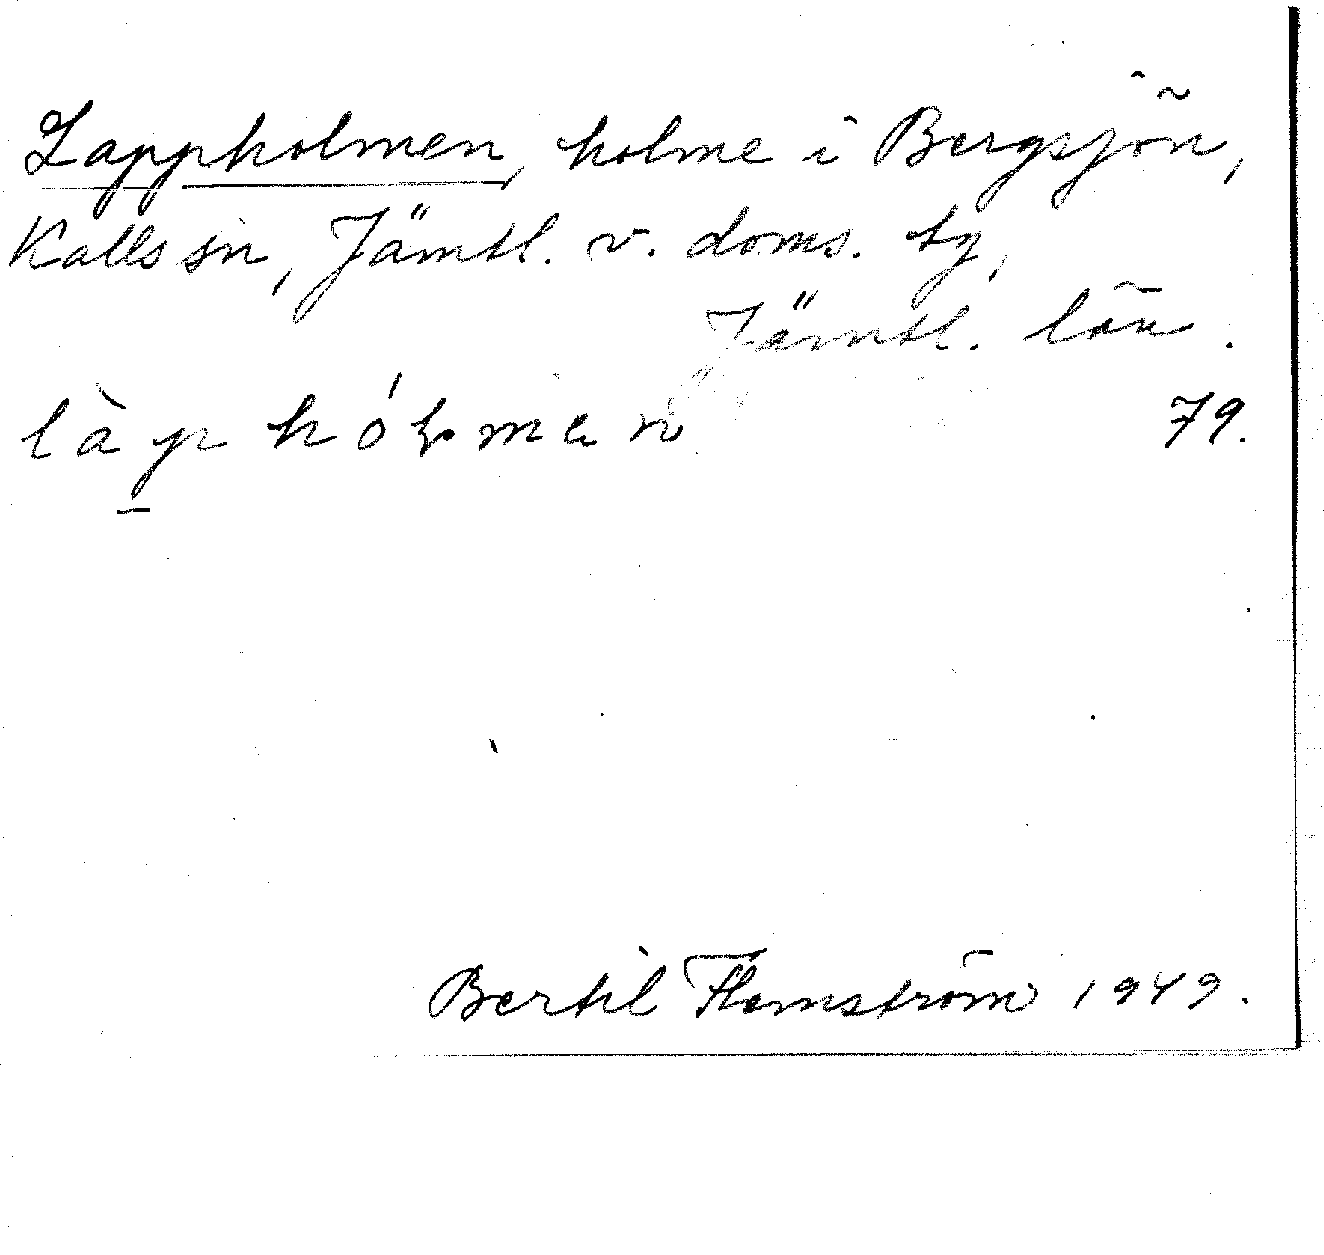 Lappholmen, holme i Bergsjön,
Kalls sn, Jämtl. v. doms. tg,
Jämtl. län.
làp hóɫmen 79.
Bertil Flemström 1949.